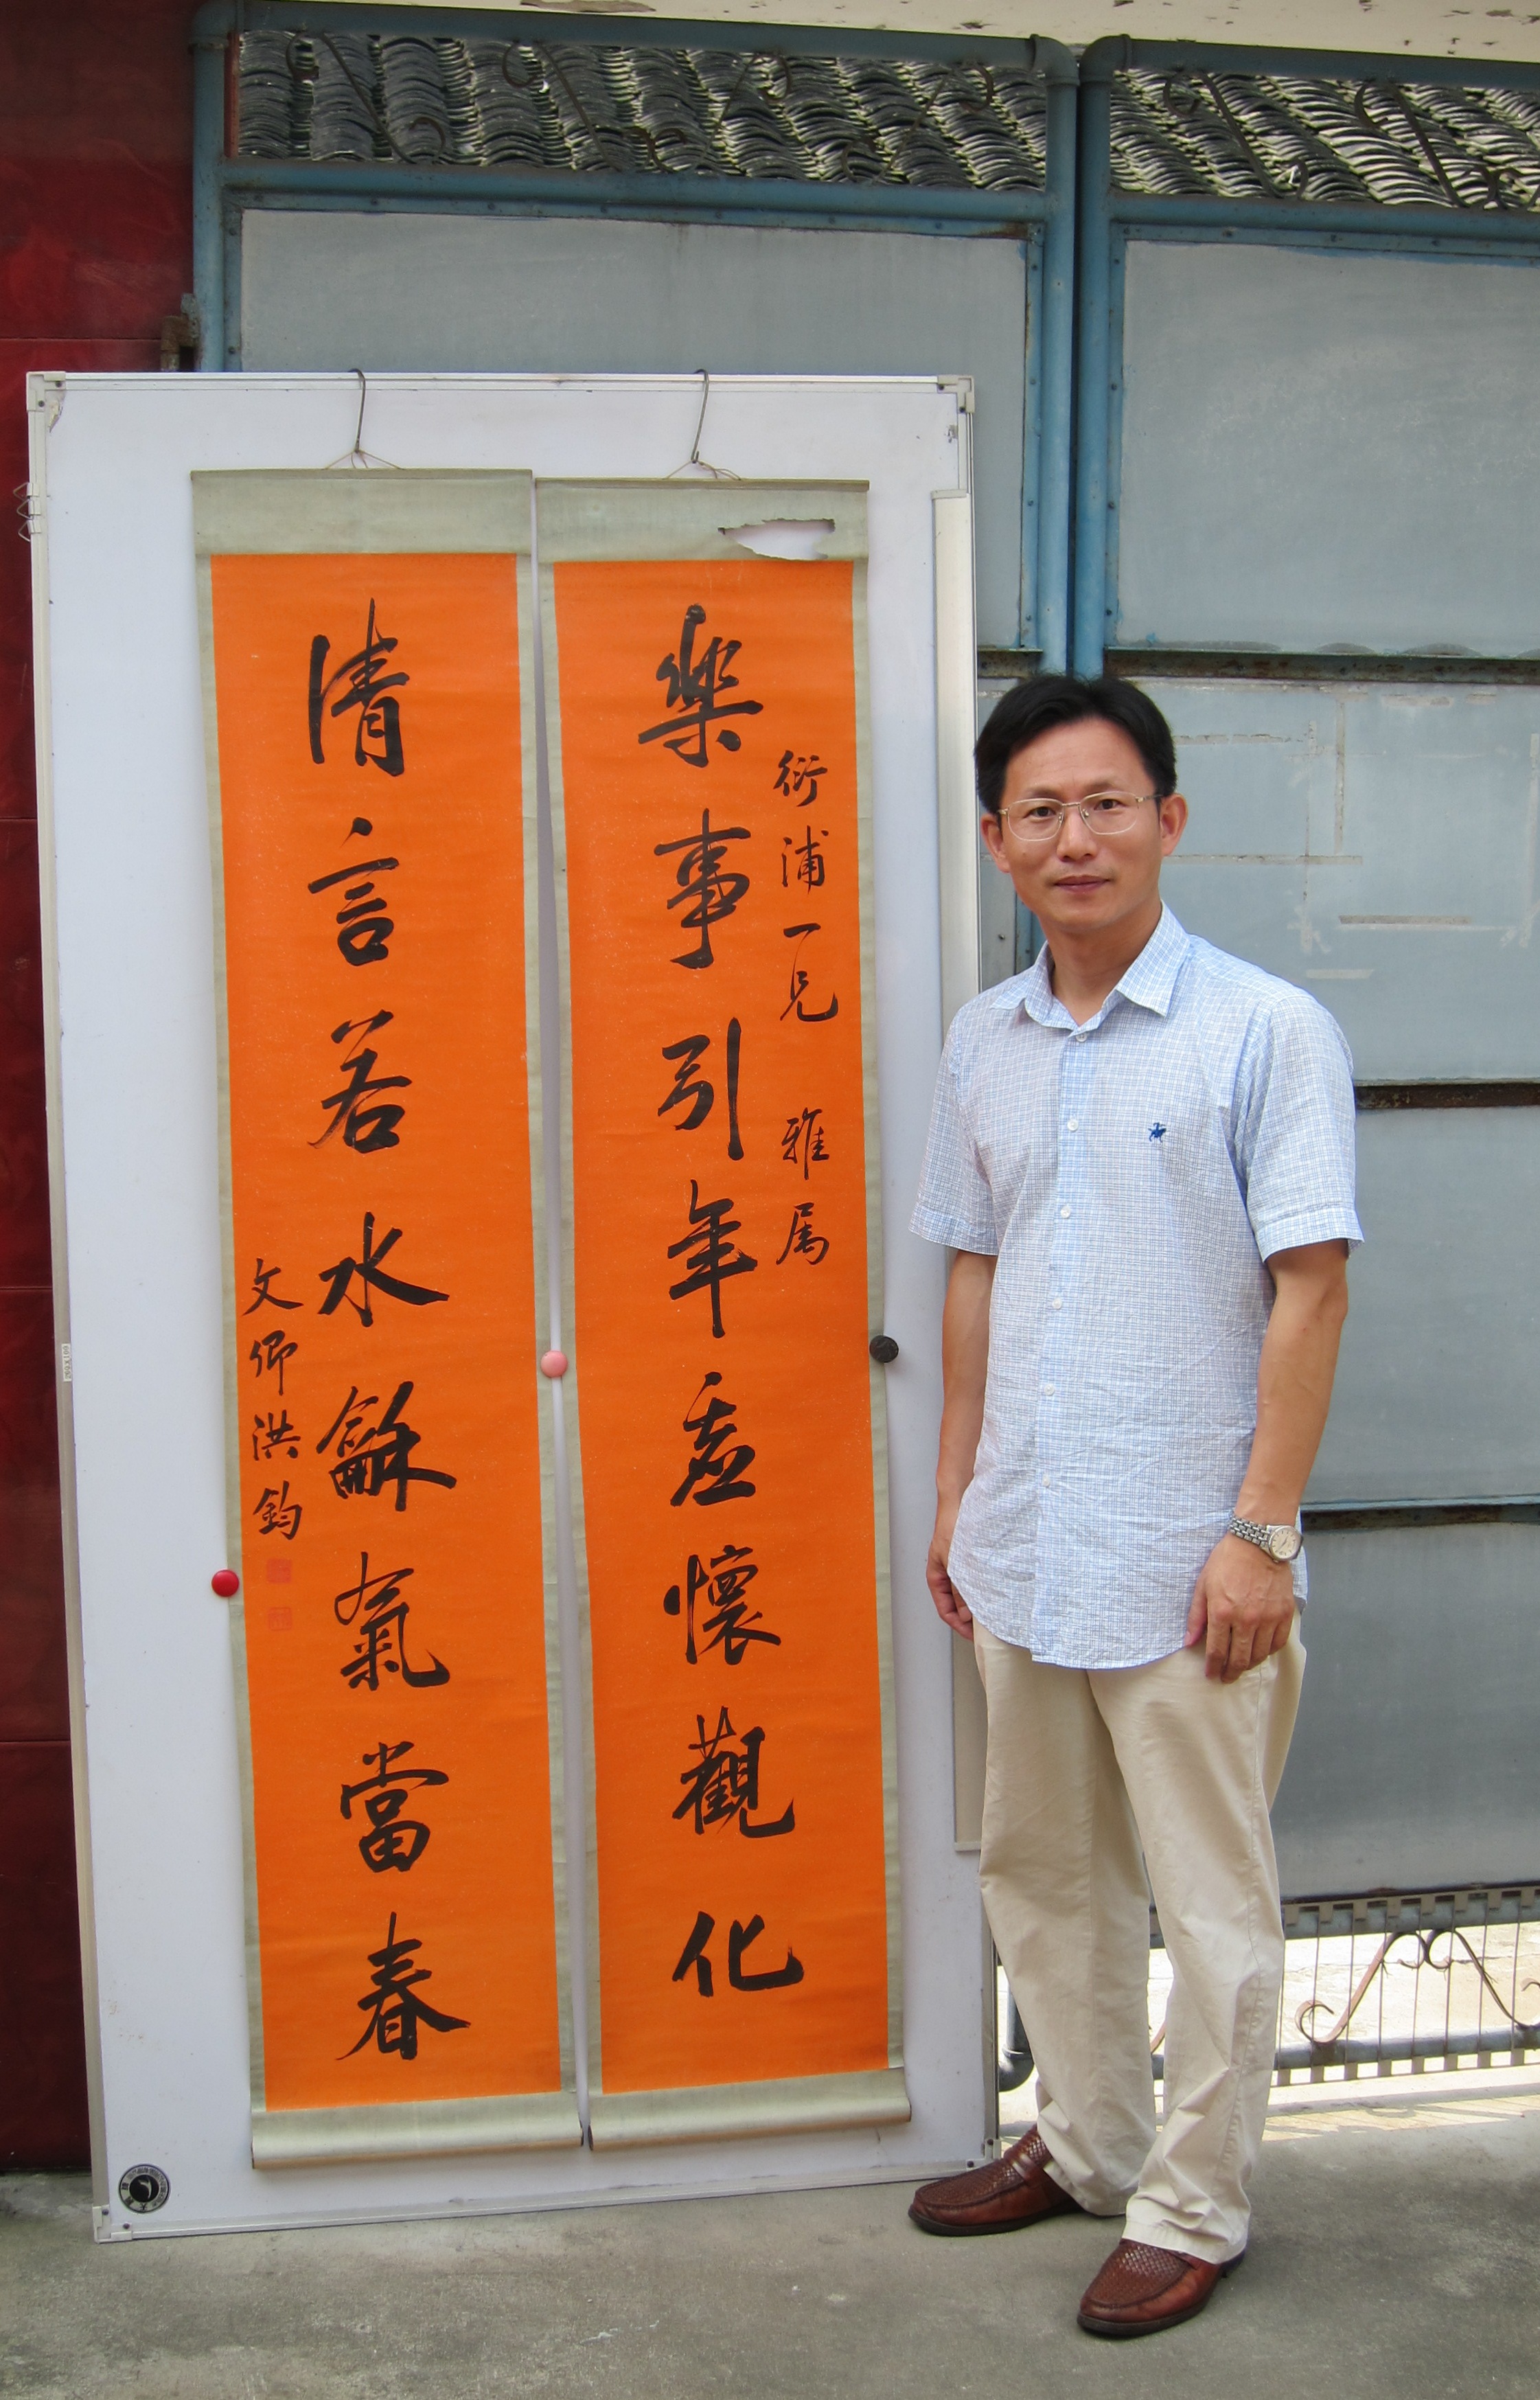 樂事引年虛懷觀化
衍浦一兄 雅属
清言若水龢氣當春
文卿洪鈞